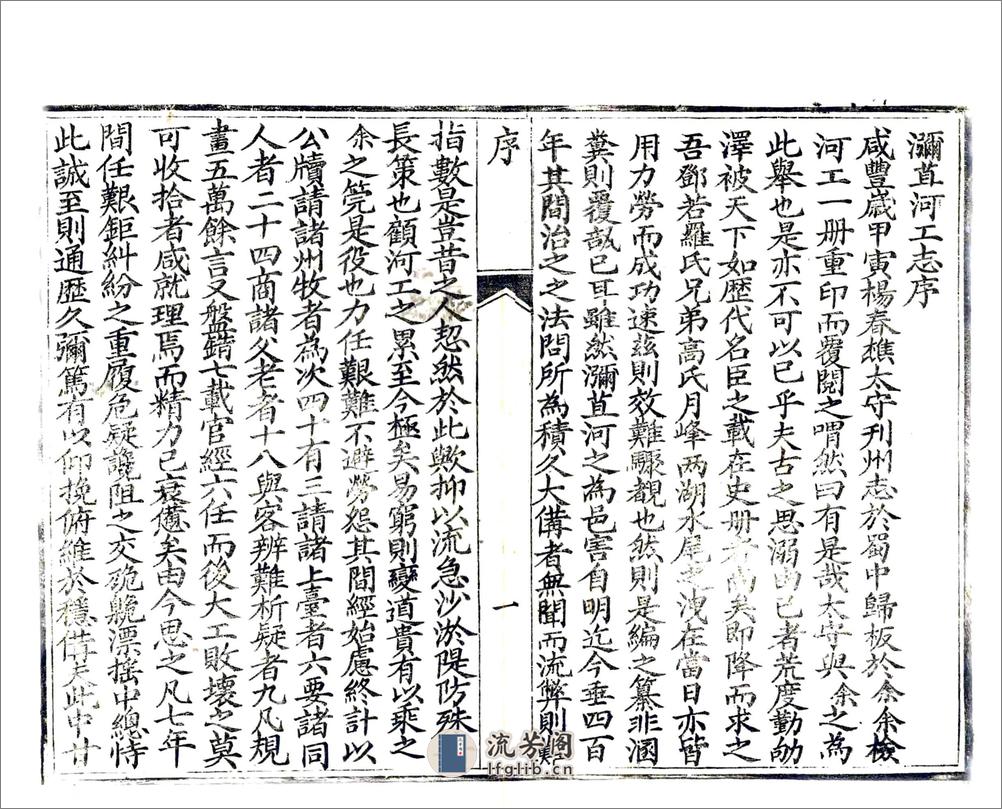 瀰苴河工志序
咸豐歲甲寅楊春樵太守刊州志於蜀中歸板於余余檢
河工一册重印而覆閱之喟然曰有是哉太守與余之為
此舉也是亦不可以已乎夫古之思溺由已者荒度勤劬
澤被天下如歷代名臣之載在史册者尚矣即降而求之
吾鄧若羅氏兄弟高氏月峰兩湖水尾之洩在當日亦皆
用力勞而成功速茲則效難驟覩也然則是編之纂非溷
糞則覆瓿已耳雖然瀰苴河之為邑害自明迄今垂四百
年其間治之之法問所為積久大備者無聞而流弊則難
序
一
指數是豈昔之人恝然於此歟抑以流急沙淤隄防殊
長策也顧河工之累至今極矣易窮則變道貴有以乘之
余之筦是役也力任艱難不避勞怨其間經始慮終計以
公牘請諸州牧者為次四十有三請諸上臺者六要諸同
人者二十四商諸父老者十八與客辨難析疑者九凡規
畫五萬餘言又盤錯七載官經六任而後大工敗壞之莫
可收拾者咸就理焉而精力已衰憊矣由今思之凡七年
間任艱鉅糾紛之重履危疑讒阻之交臲卼漂搖中總恃
此誠至則通歷久彌篤有以仰挽俯維於穩備是此中甘
流芳阁
lfglib.cn